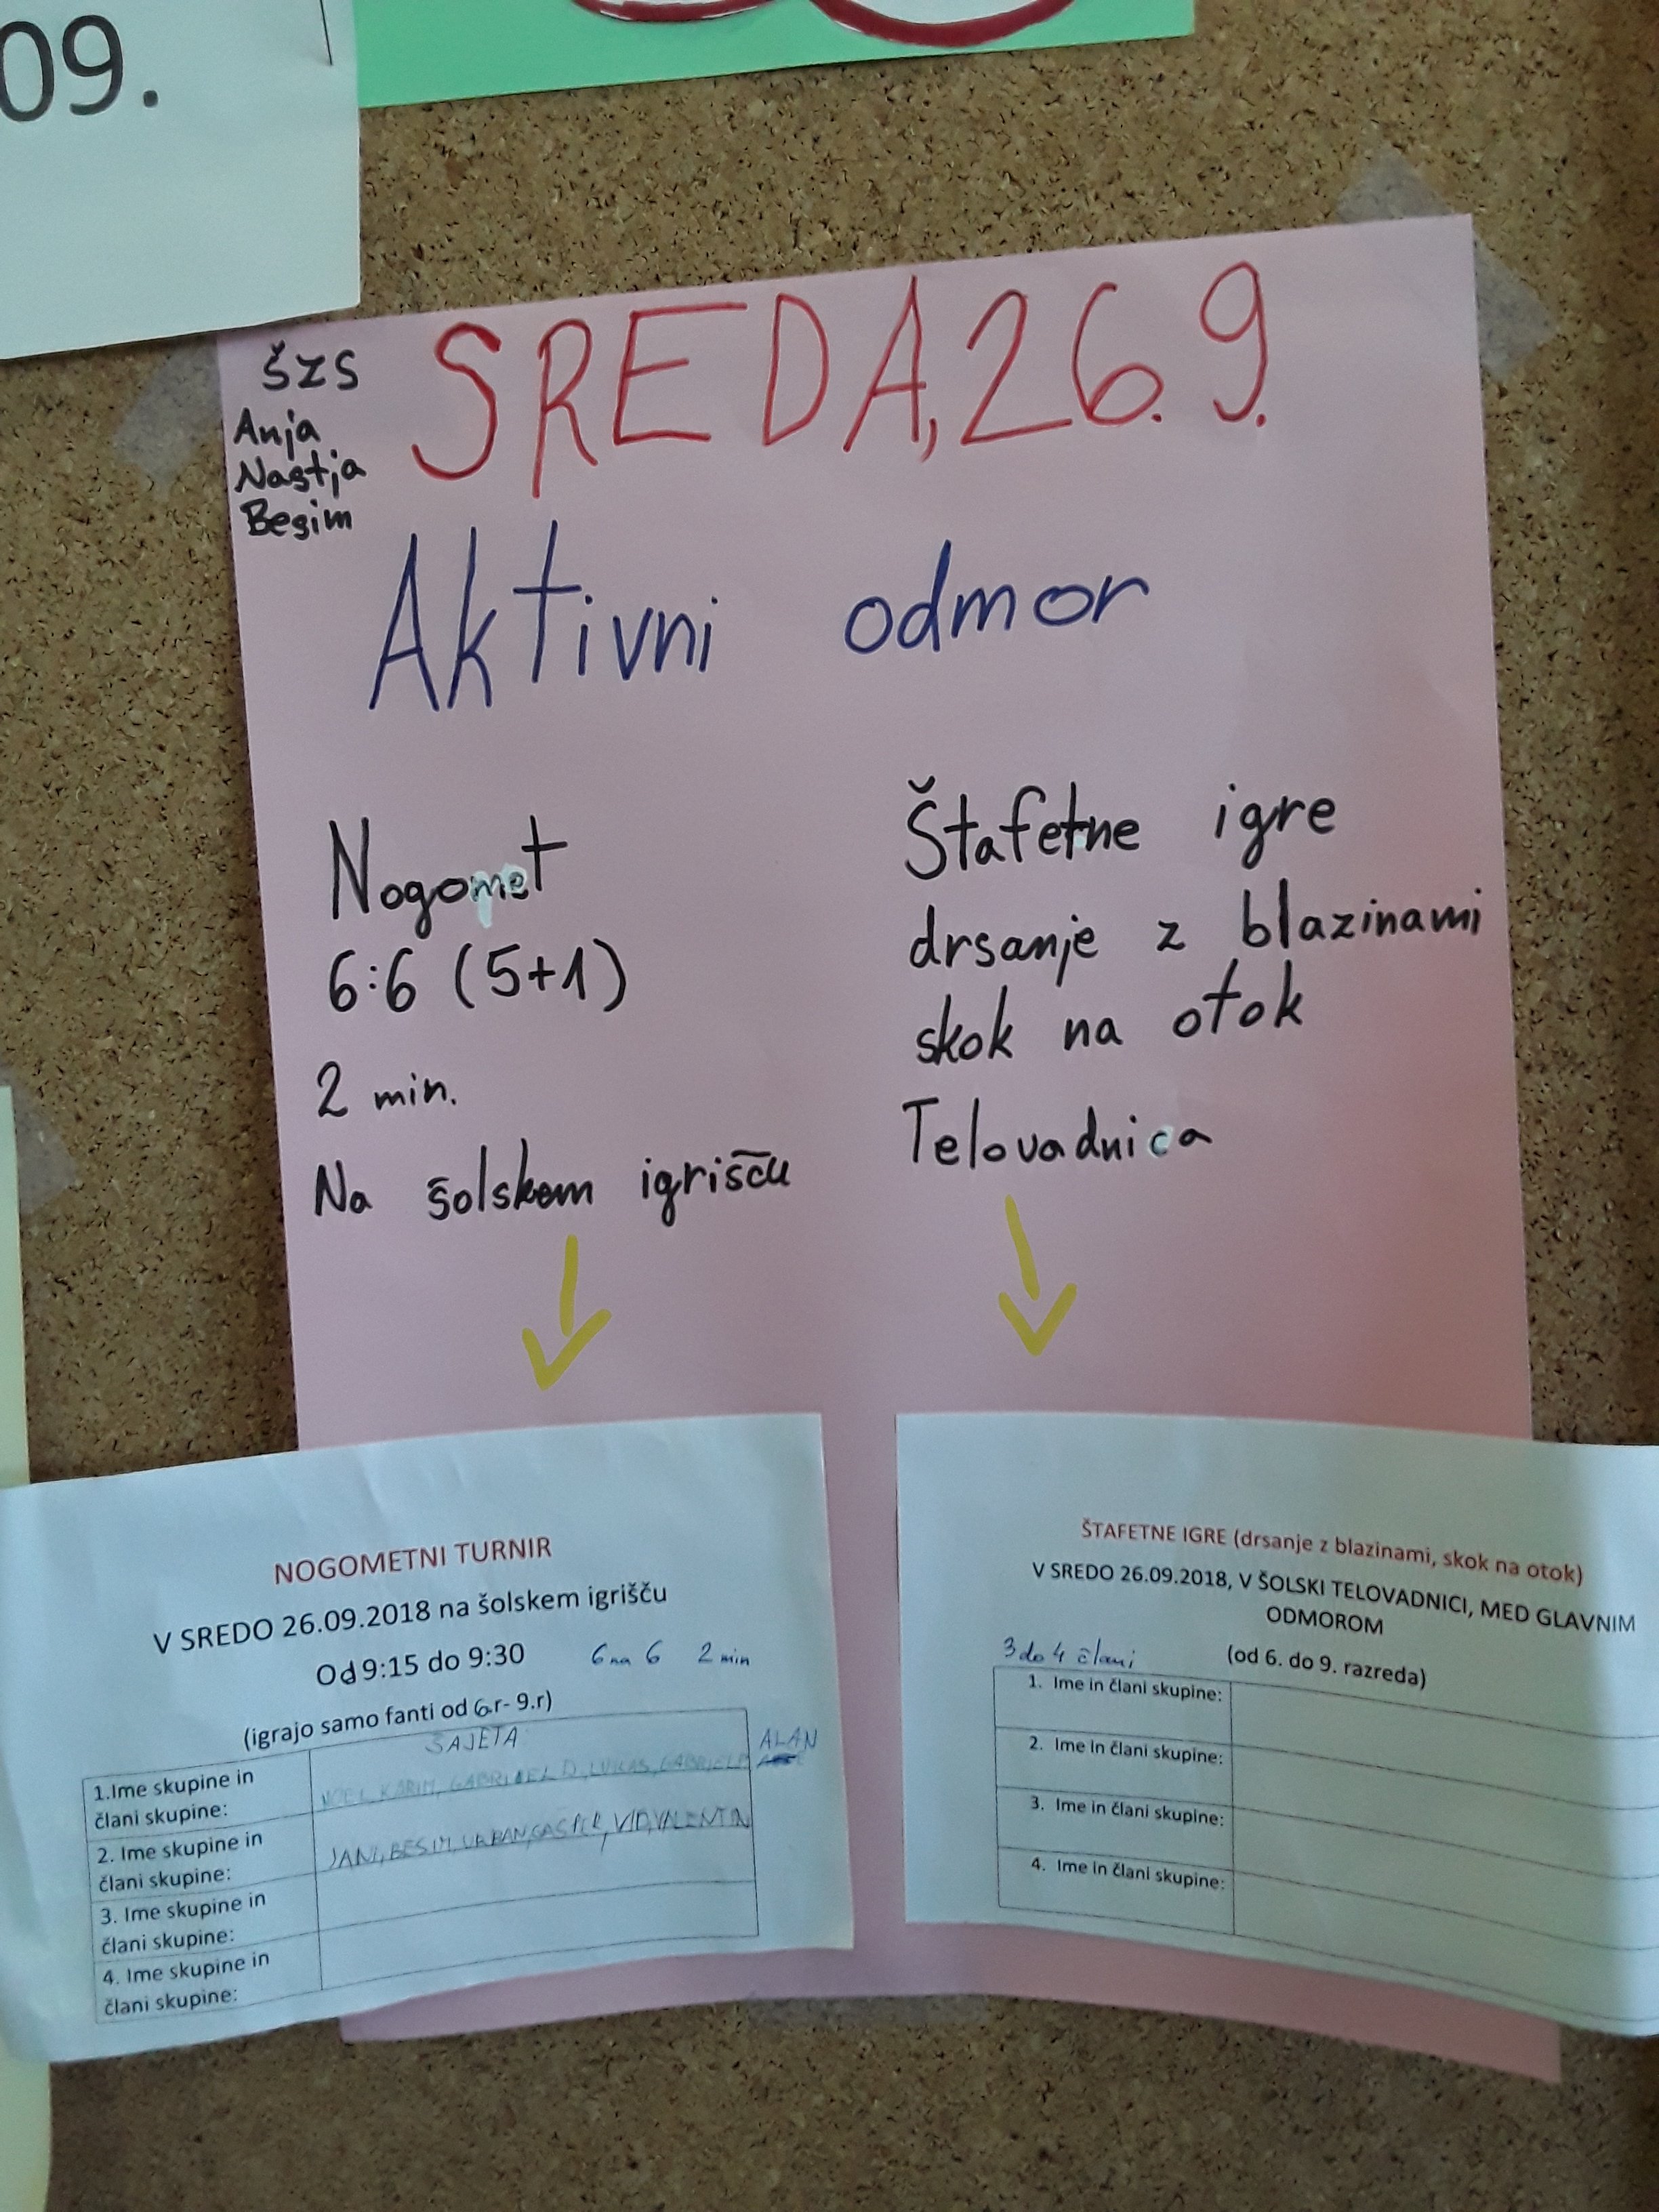 09.
ŠZS
Anja
Nastja
Besim
SREDA, 26. 9.
Aktivni odmor
Nogomet
6:6 (5+1)
2 min.
Na šolskem igrišču
Štafetne igre
drsanje z blazinami
skok na otok
Telovadnica
NOGOMETNI TURNIR
V SREDO 26.09.2018 na šolskem igrišču
Od 9:15 do 9:30 6 na 6 2 min
(igrajo samo fanti od 6.r- 9.r)
1.Ime skupine in
člani skupine:
ŠAJETA
NOEL, KARIM, GABRIJEL D, LUKAS, GABRIEL P ALAN
2. Ime skupine in
člani skupine:
JANI, BESIM, URBAN, GAŠPER, VID, VALENTIN
3. Ime skupine in
člani skupine:
4. Ime skupine in
člani skupine:
ŠTAFETNE IGRE (drsanje z blazinami, skok na otok)
V SREDO 26.09.2018, V ŠOLSKI TELOVADNICI, MED GLAVNIM
ODMOROM
3 do 4 člani (od 6. do 9. razreda)
1. Ime in člani skupine:
2. Ime in člani skupine:
3. Ime in člani skupine:
4. Ime in člani skupine: